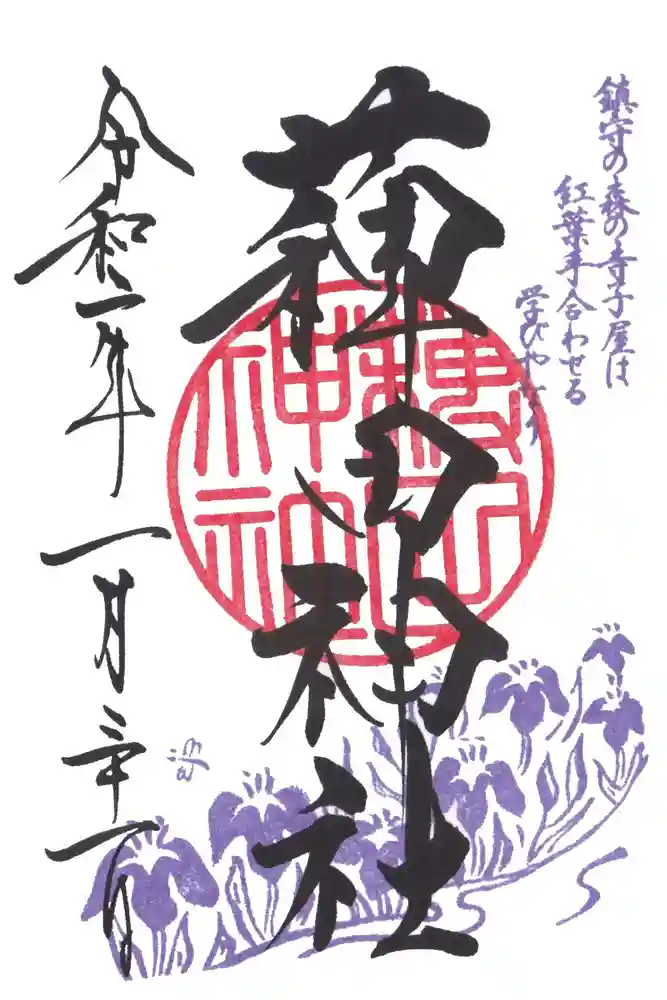 鎮守の森の寺子屋は
紅葉手合わせる
学びやなり
薭田神社
令和二年一月三十一日